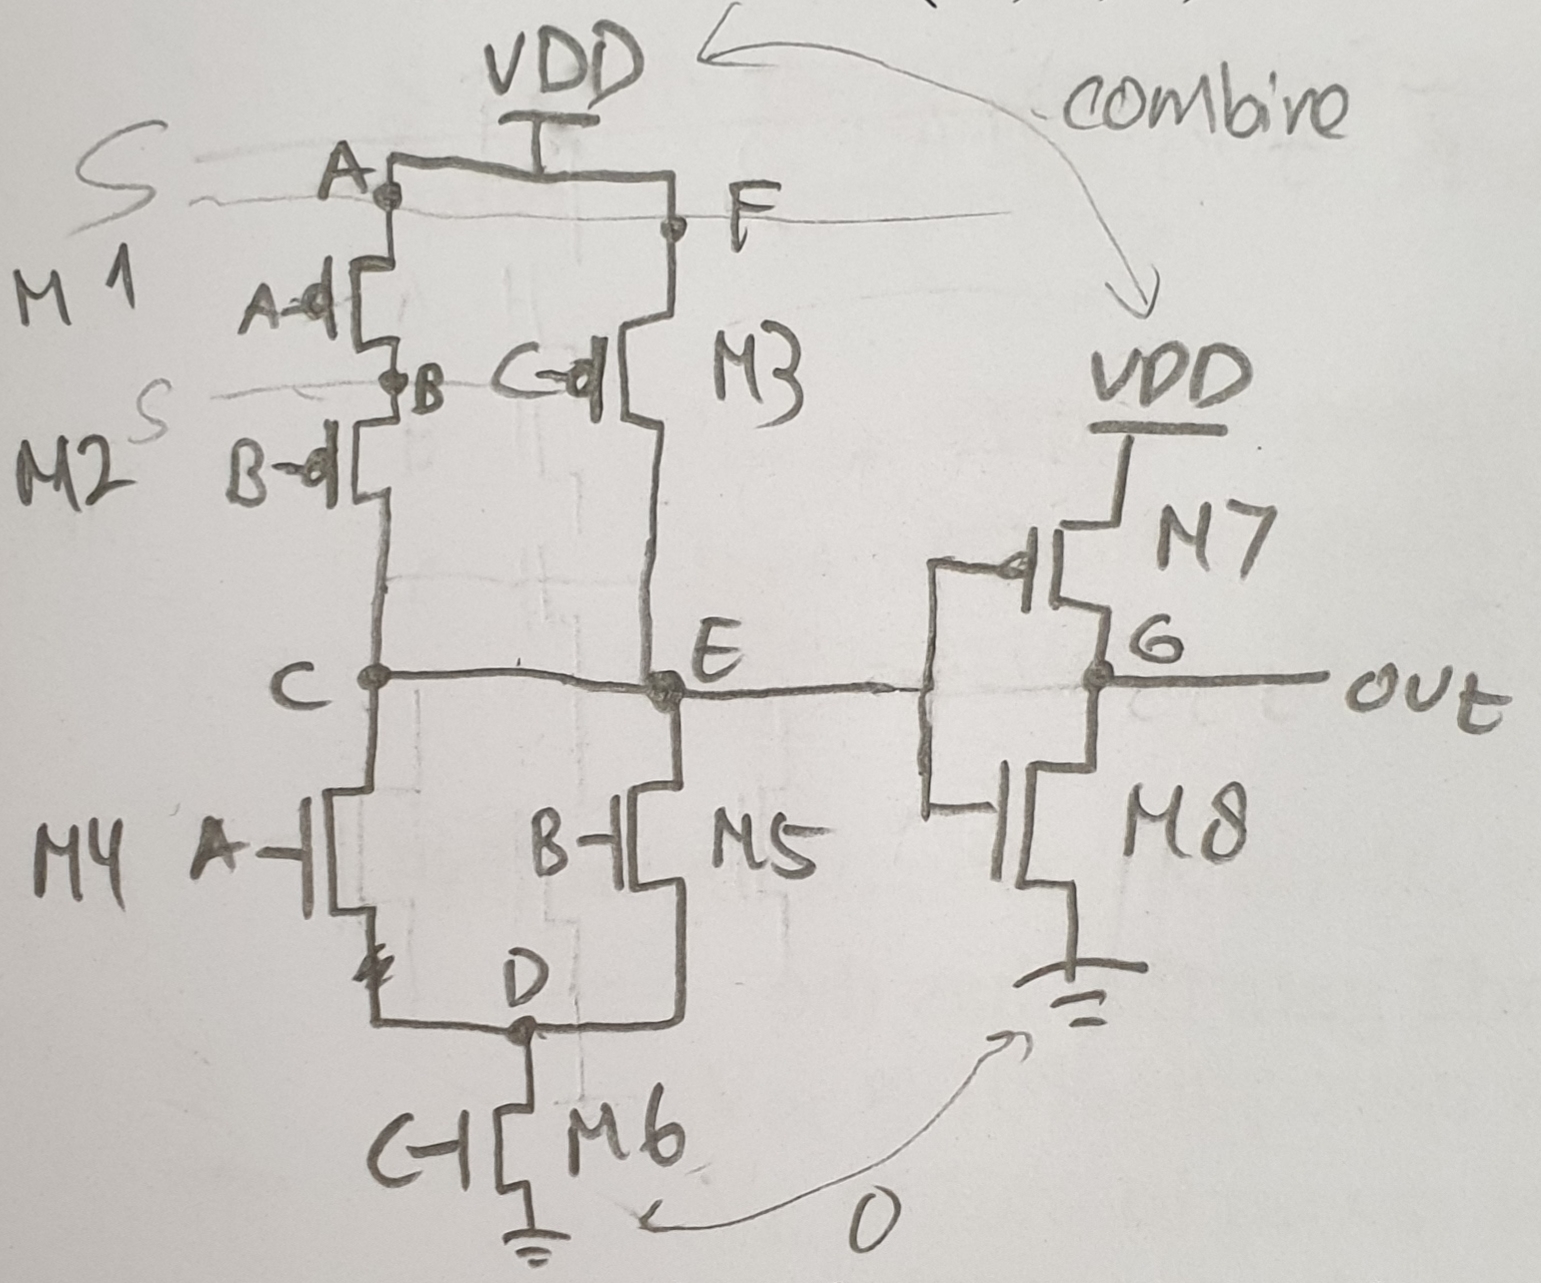 VDD
combine
S
A
F
M1
A
B
C
M3
S
M2
B
VDD
M7
C
E
G
out
M4
A
B
M5
M8
D
C
M6
0